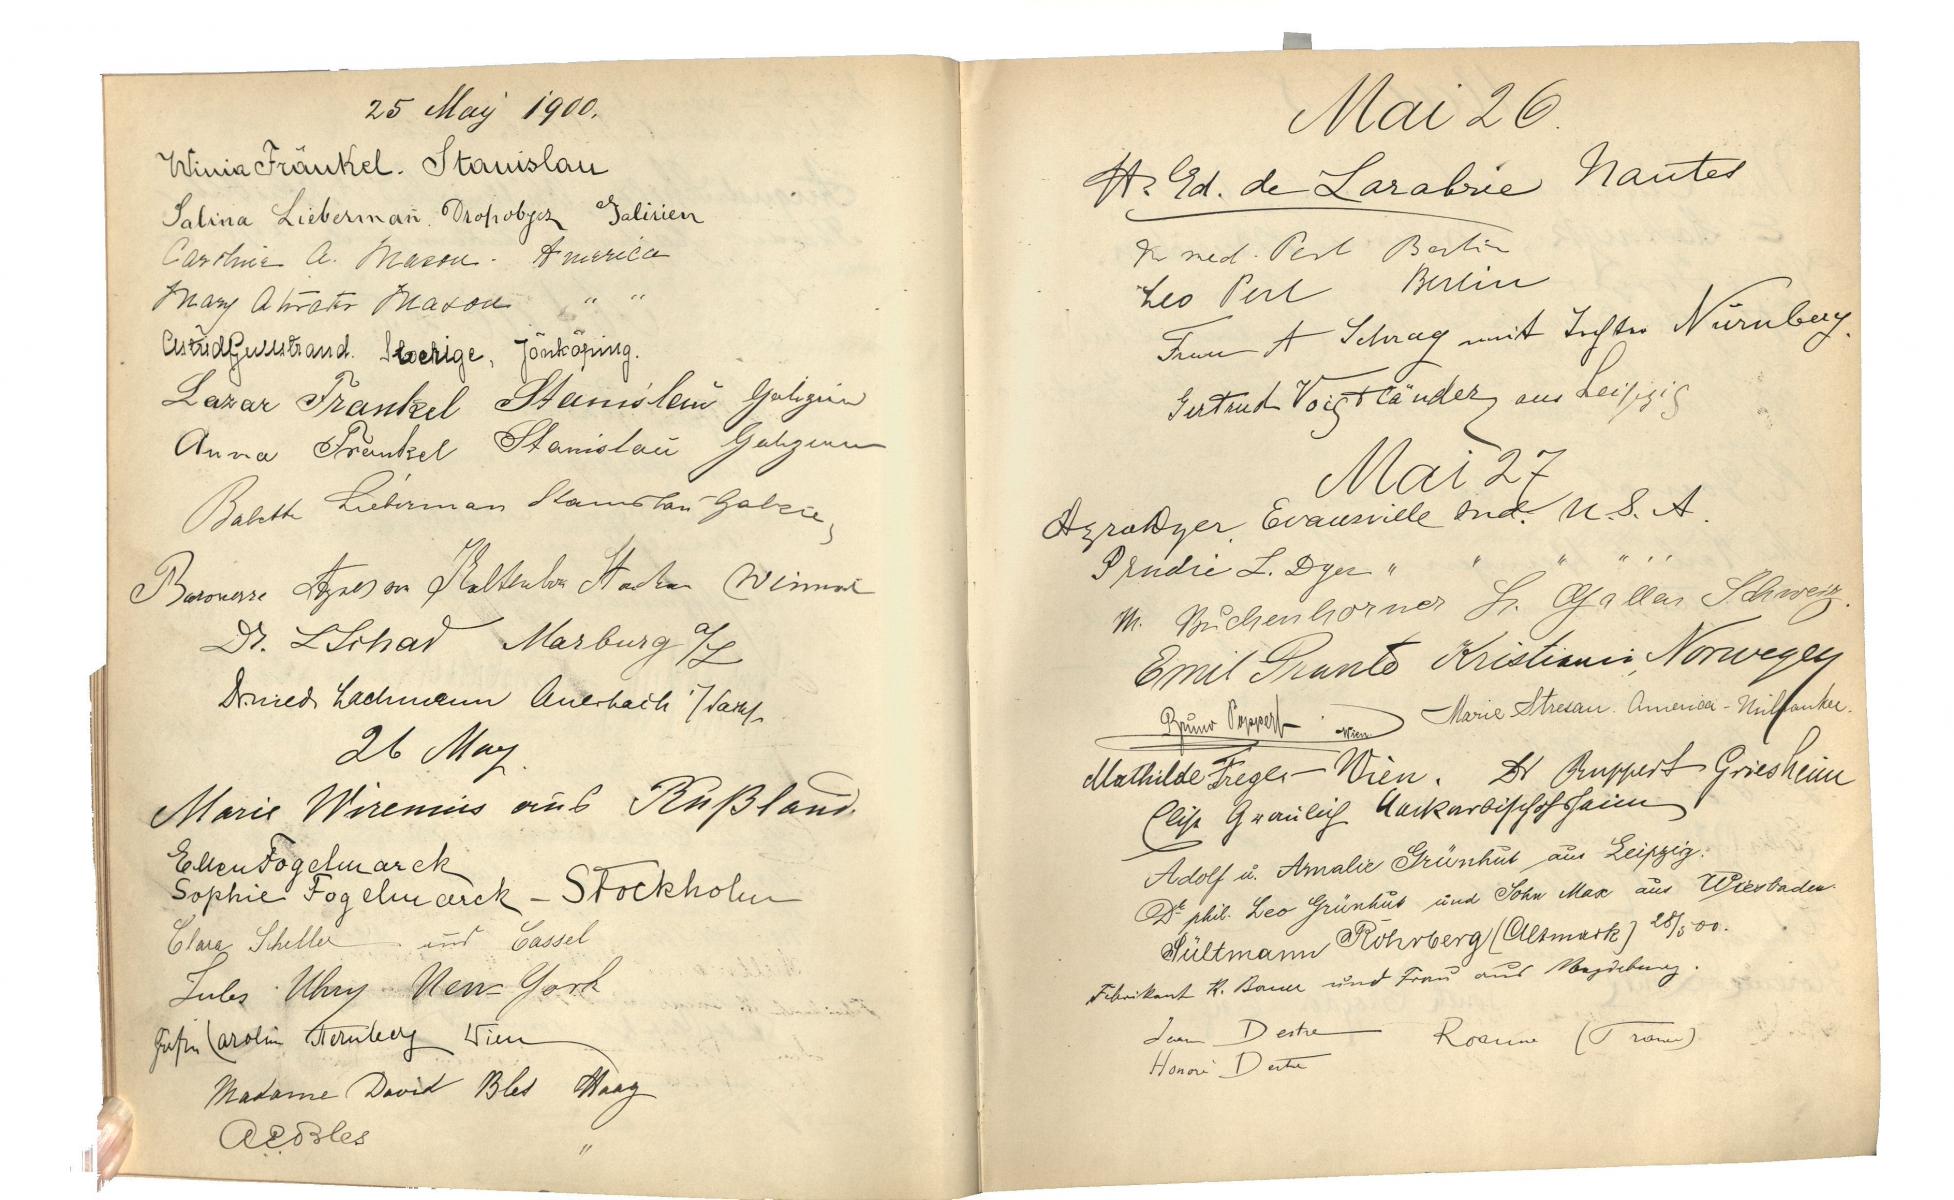 25 May 1900.
Winia Fränkel. Stanislau
Salina Lieberman Drohobycz Galizien
Caroline A. Mason. America
Mary Mason " "
Astrid Gullstrand. Sverige, Jönköping.
Lazar Frankel Stanislau Galizien
Anna Frankel Stanislau Galizien
Babette Lieberman Stanislau Galizien
Baronesse
Dr. L Schad Marburg a/L
Dr. med. Lachmann Auerbach
26 May.
Marie Wiremius aus Rußland.
Ellen Fogelmarck
Sophie Fogelmarck – Stockholm
Clara Scheller Cassel
Jules Uhry New-York
Carolin Sternberg Wien
Madame David Bles Haag
A.E. Bles "
Mai 26.
Ed. de Larabrie Nantes
Dr med. Perl Berlin
Leo Perl Berlin
Frau A Schrag mit Tochter Nürnberg.
Gertrud Voigtländer aus Leipzig
Mai 27
Azro Dyer, Evansville Ind. U.S.A.
Prudie L. Dyer " " " " "
M. Buchenhorner St. Gallen Schweiz.
Emil Kristiania, Norwegen
Bruno Poppert Wien
Marie Stresau. America - Milwaukee.
Mathilde Wien. Dr Ruppert Griesheim
Elise Graulich Neckarbischofsheim
Adolf u. Amalie Grünhut aus Leipzig.
Dr phil. Leo Grünhut und Sohn Max aus Wiesbaden.
Sültmann Rohrberg (Altmark) 28/5 00.
Fabrikant K. Bauer und Frau aus Magdeburg.
Destre Roanne (France)
Honoré Destre